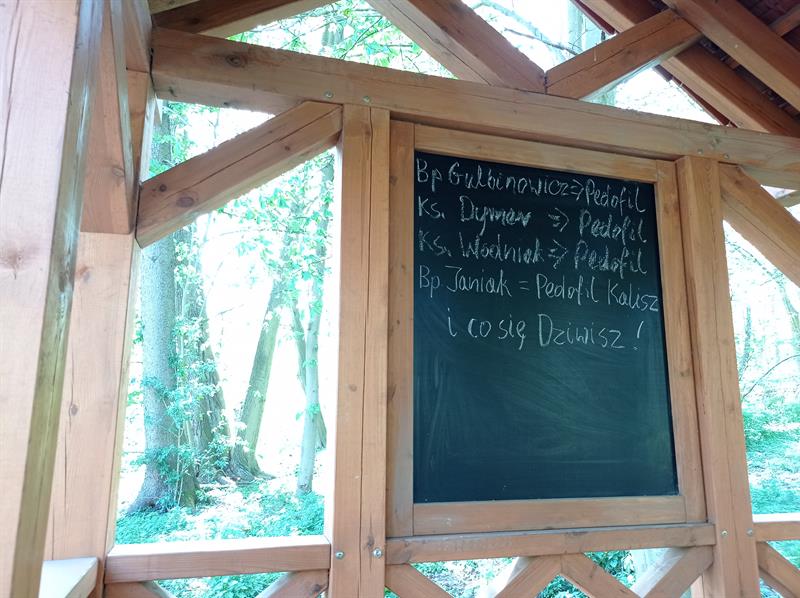 Bp Gulbinowicz => Pedofil
Ks. Dymer => Pedofil
Ks. Wodniak => Pedofil
Bp Janiak = Pedofil Kalisz
i co się Dziwisz!